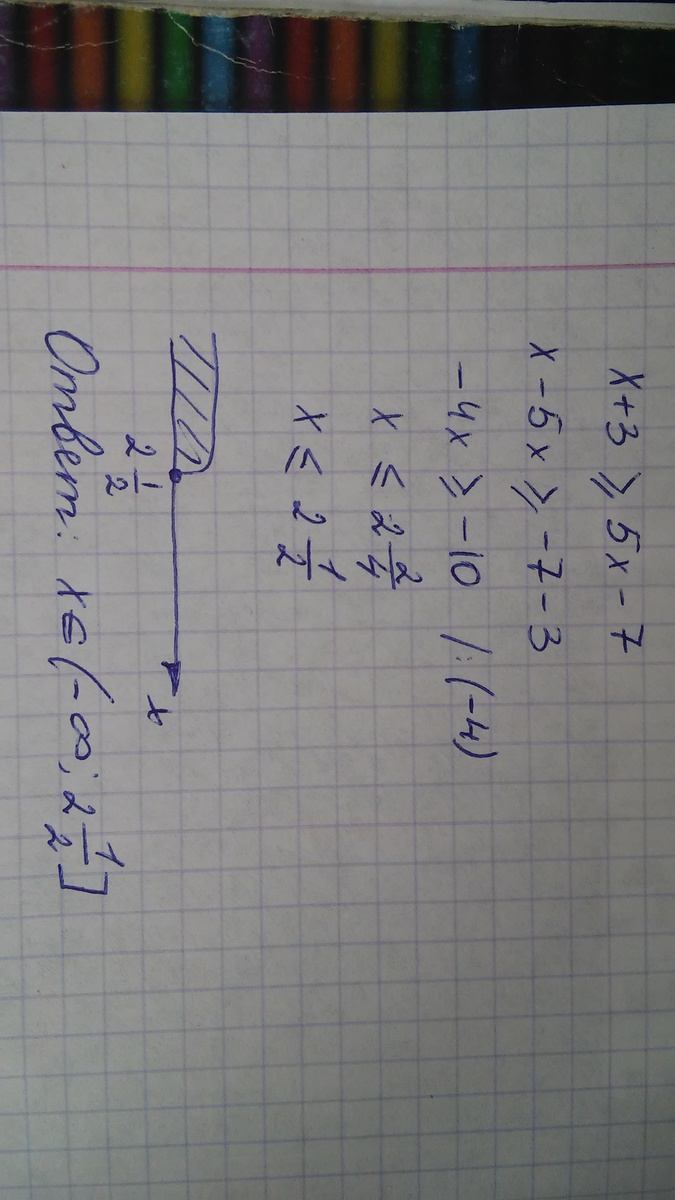 x+3 ⩾ 5x-7
x-5x ⩾ -7-3
-4x ⩾ -10 /:(-4)
x ≤ 2 2/4
x ≤ 2 1/2
2 1/2 x
Ответ: x∈(-∞; 2 1/2]